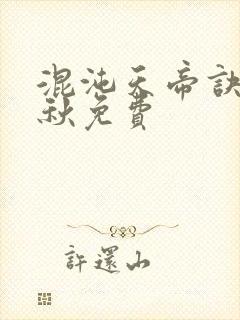 混沌天帝訣
秋免費
許還山